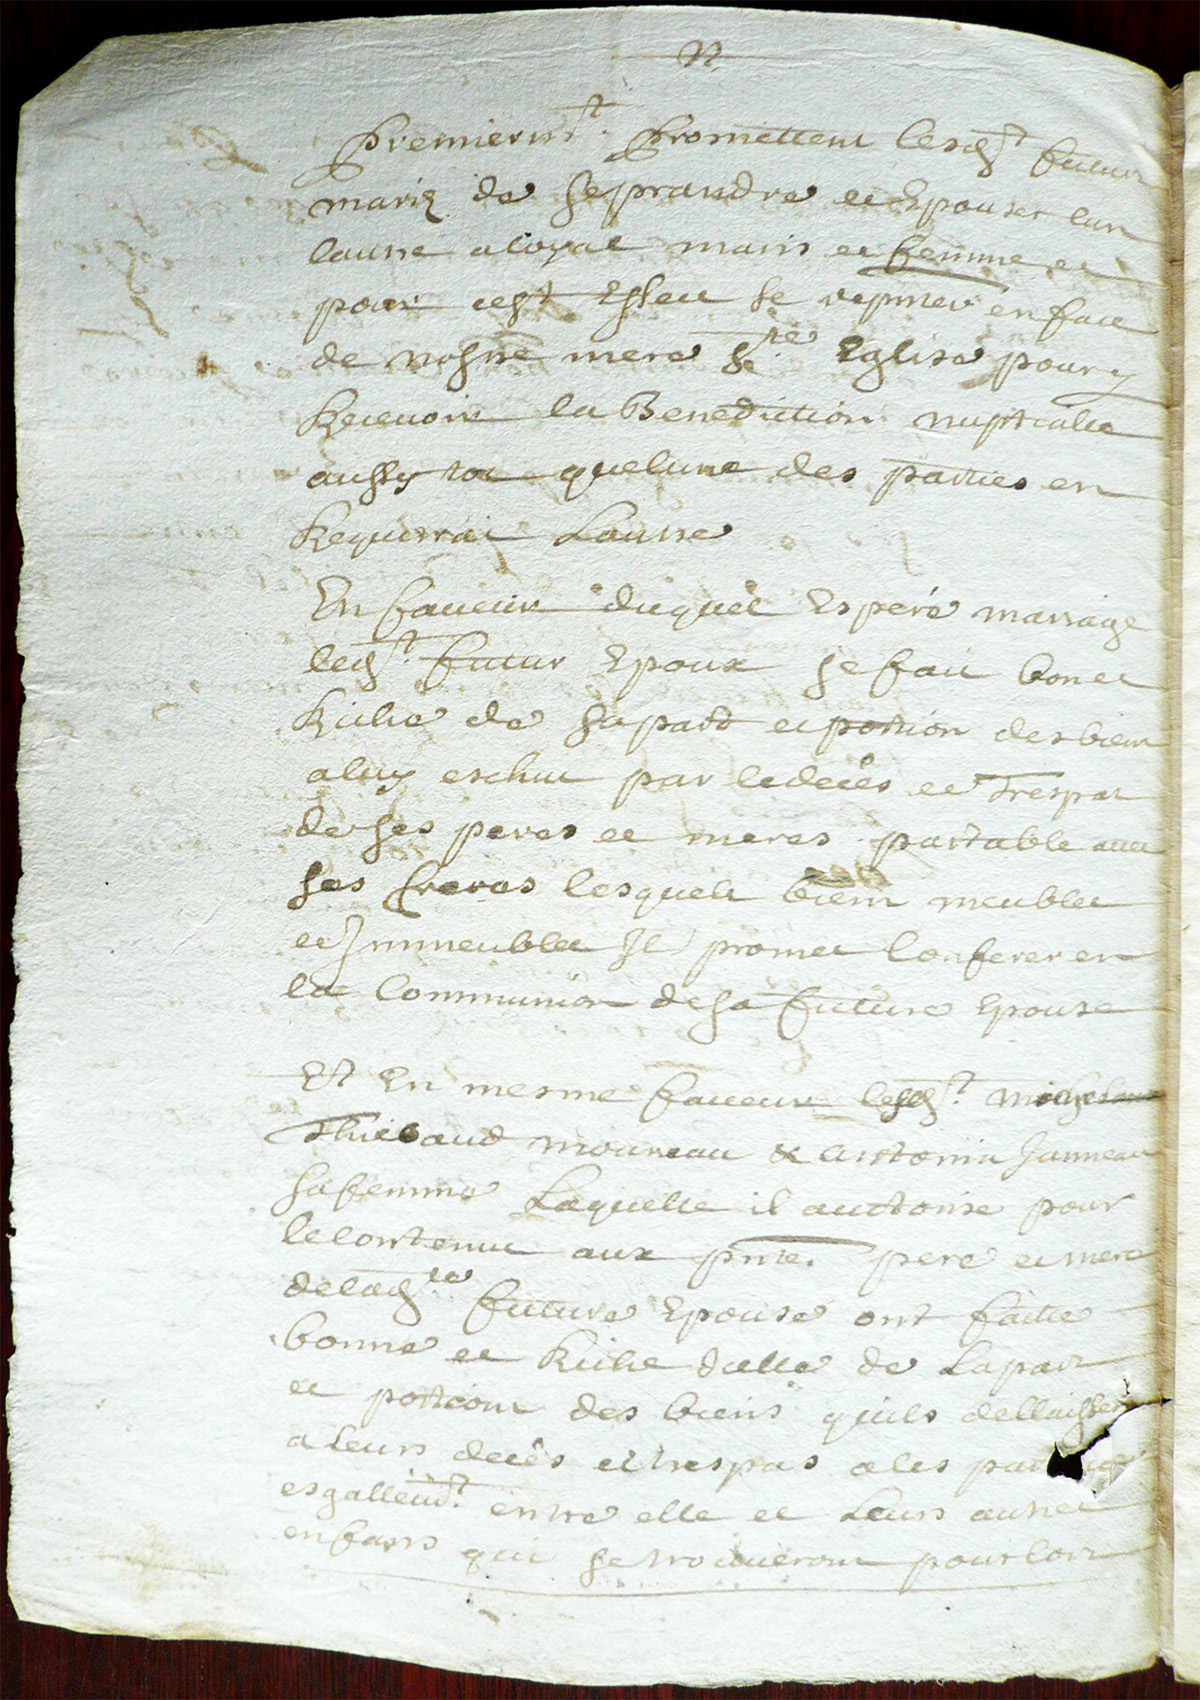 Premierm.t promettent lesd.t futur
mariz de se prandre et Epouser lun
lautre a loyal maris et femme et
pour cest Effect se repnter en face
de nostre mere S.te Eglise pour y
Recevoir la Benediction nuptialle
aussy tot quelune des parties en
Requerrai Lautre
En faveur duquel Esperé mariage
led.t futur Epoux se fait bon et
Riche de sa part et portion des biens
a luy eschut par le decés et Trespas
de ses peres et meres partable avec
ses freres lesquels biens meubles
et Immeubles Il promet Conferer en
la Communion de sa future Epouse
Et En mesme faveur lesd.t
Thiebaud moureau & antonin Janneau
sa femme Laquelle il auctorise pour
le contenu aux pnte. pere et mere
de lad.te future Epouse ont faitte
bonne et Riche d'elle de La part
et portion des biens quils dellaisseront
a leurs decés et trespas a les
esgallem.t entre elle et Leurs autres
enfans qui se trouveront pour lors